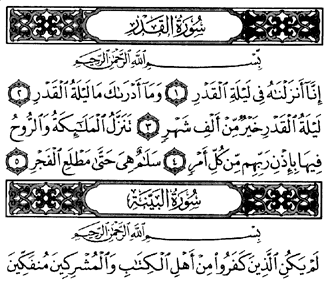 سُورَةُ الْقَدْرِ
بِسْمِ اللَّهِ الرَّحْمَٰنِ الرَّحِيمِ
إِنَّا أَنزَلْنَٰهُ فِى لَيْلَةِ الْقَدْرِ ١ وَمَا أَدْرَىٰكَ مَا لَيْلَةُ الْقَدْرِ ٢
لَيْلَةُ الْقَدْرِ خَيْرٌ مِّنْ أَلْفِ شَهْرٍ ٣ تَنَزَّلُ الْمَلَٰٓئِكَةُ وَالرُّوحُ
فِيهَا بِإِذْنِ رَبِّهِم مِّن كُلِّ أَمْرٍ ٤ سَلَٰمٌ هِىَ حَتَّىٰ مَطْلَعِ الْفَجْرِ ٥
سُورَةُ الْبَيِّنَةِ
بِسْمِ اللَّهِ الرَّحْمَٰنِ الرَّحِيمِ
لَمْ يَكُنِ الَّذِينَ كَفَرُوا مِنْ أَهْلِ الْكِتَٰبِ وَالْمُشْرِكِينَ مُنفَكِّينَ